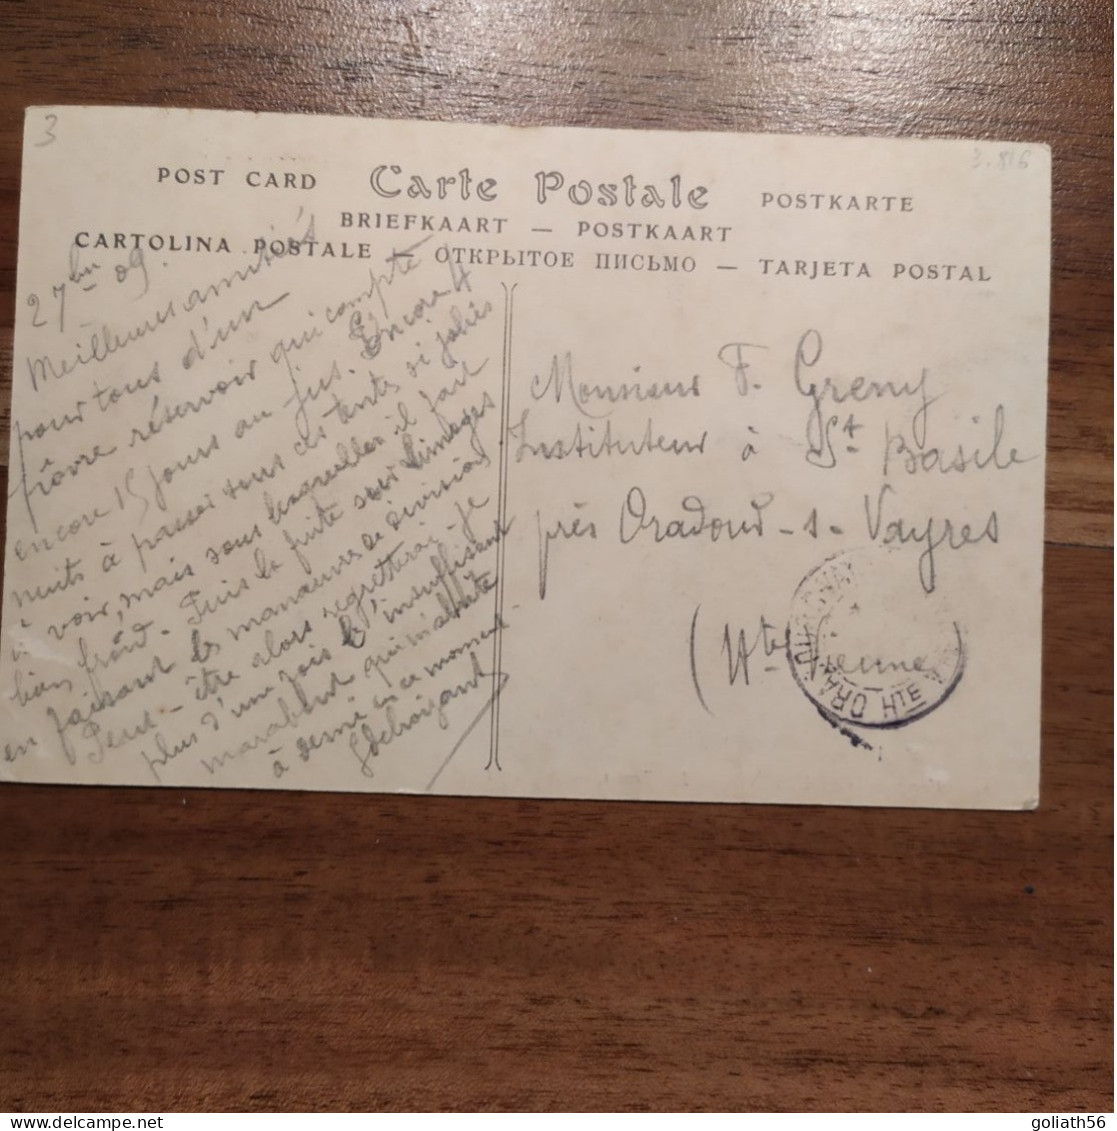 3
3.816
POST CARD Carte Postale POSTKARTE
BRIEFKAART — POSTKAART
CARTOLINA POSTALE — ОТКРЫТОЕ ПИСЬМО — TARJETA POSTAL
27 09.
Meilleures amitiés
pour tous d'un
réservoir qui compte
encore 15 jours au jus. Encore 4
nuits à passer sous ces tentes si jolies
à voir, mais sous lesquelles il fait
bien froid. Puis la fuite sur Limoges
en faisant les manœuvres de division
Peut-être alors regretterai-je
plus d'une fois l'insuffisant
marabout qui m'abrite
à demi en ce moment
Monsieur F. Greny
Instituteur à St Basile
près Oradour-s-Vayres
(Hte Vienne)
HTE
goliath56